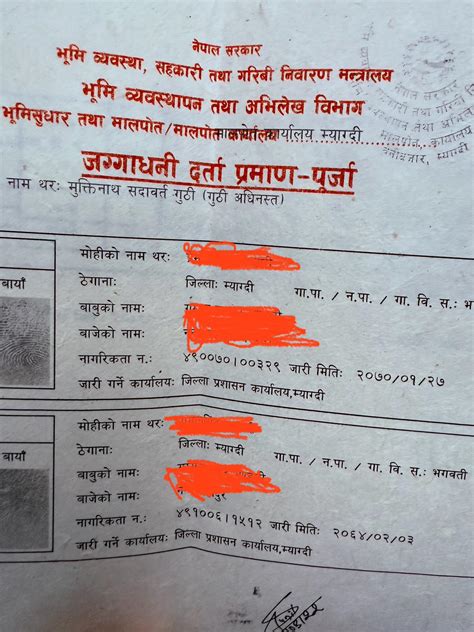 नेपाल सरकार
भूमि व्यवस्था, सहकारी तथा गरिबी निवारण मन्त्रालय
भूमि व्यवस्थापन तथा अभिलेख विभाग
भूमिसुधार तथा मालपोत/मालपोत कार्यालय कार्यालय म्याग्दी
जग्गाधनी दर्ता प्रमाण-पूर्जा
नाम थरः मुक्तिनाथ सदावर्त गुठी (गुठी अधिनस्त)
मोहीको नाम थरः
बायाँ
ठेगानाः जिल्लाः म्याग्दी गा.पा. / न.पा. / गा. वि. स.: भ
बाबुको नामः
बाजेको नामः
नागरिकता न.: ४९००७०।००३२९ जारी मितिः २०७०/०९/२७
जारी गर्ने कार्यालयः जिल्ला प्रशासन कार्यालय,म्याग्दी
मोहीको नाम थरः
बायाँ
ठेगानाः जिल्लाः म्याग्दी गा.पा. / न.पा. / गा. वि. स.: भगवती
बाबुको नामः
बाजेको नामः
नागरिकता न.: ४९१००६।९५१२ जारी मितिः २०६४/०२/०३
जारी गर्ने कार्यालयः जिल्ला प्रशासन कार्यालय,म्याग्दी